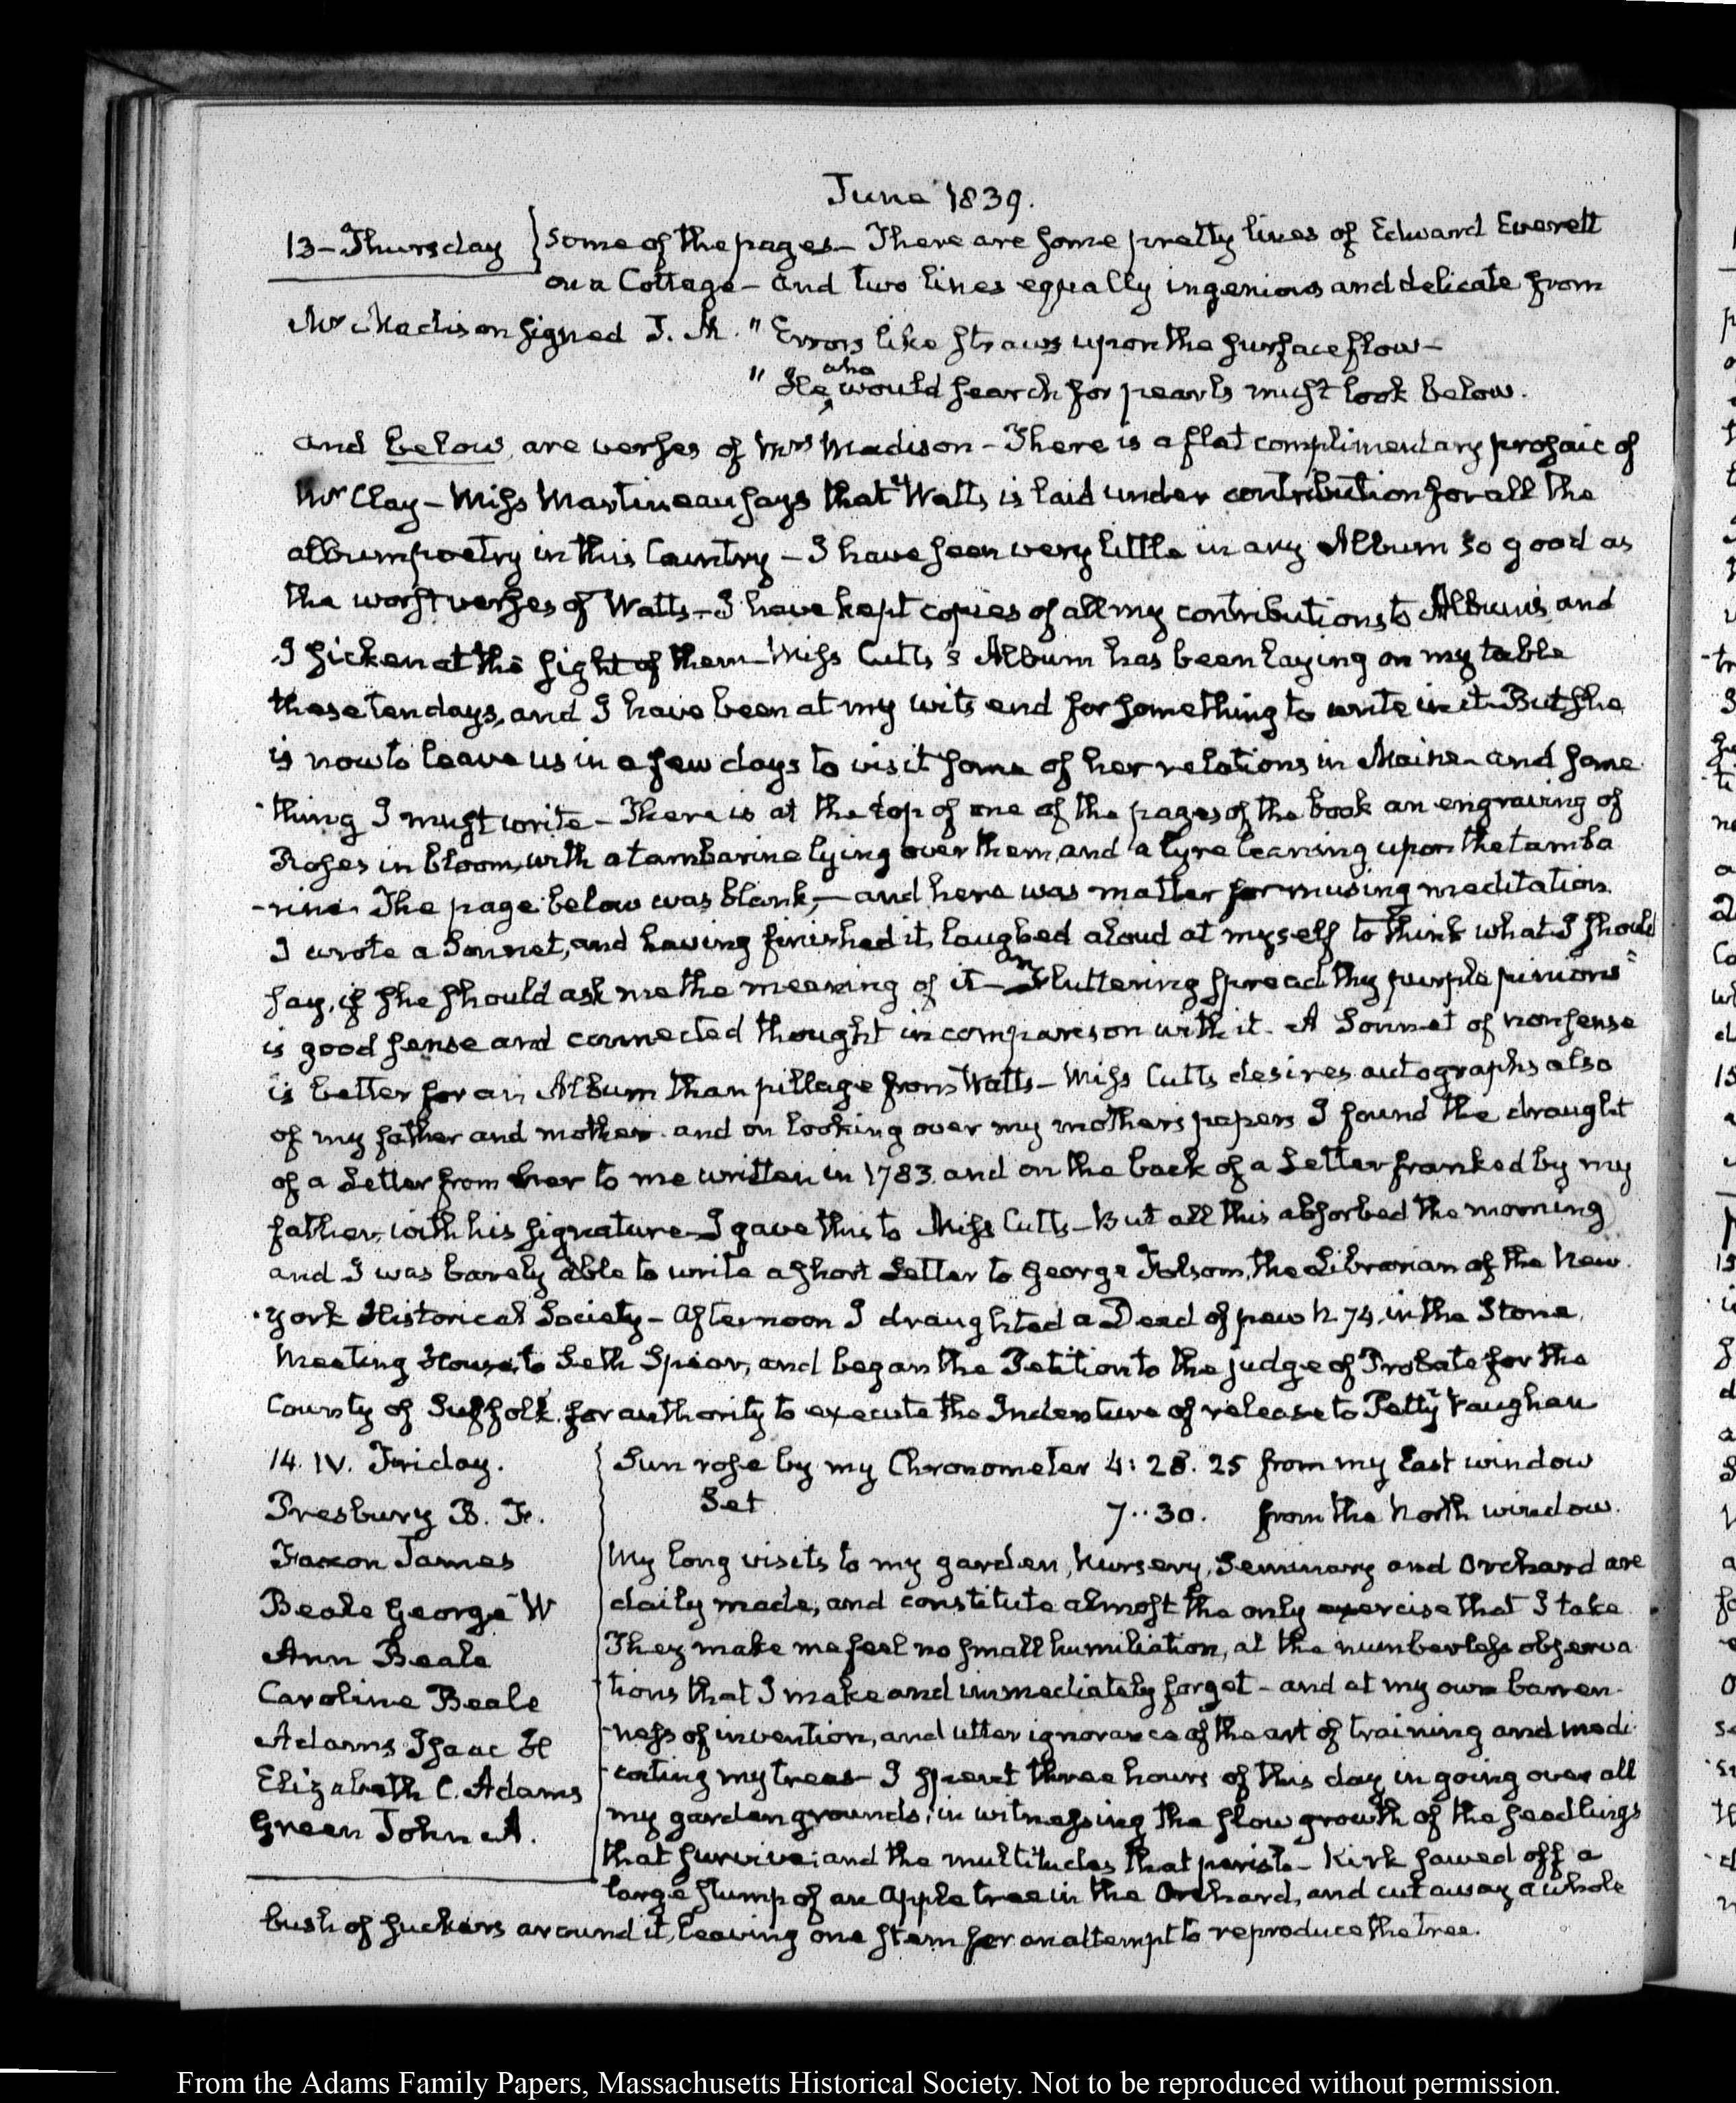 June 1839.
13 - Thursday } some of the pages - There are some pretty lines of Edward Everett
on a Cottage - and two lines equally ingenious and delicate from
Mr Madison signed J. M. " Errors like straws upon the surface flow -
" He who would search for pearls must look below.
and below are verses of Mrs Madison - There is a flat complimentary prosaic of
Mr Clay - Miss Martineau says that Watts is laid under contribution for all the
album poetry in this Country - I have seen very little in any Album so good as
the worst verses of Watts - I have kept copies of all my contributions to Albums and
I sicken at the sight of them - Miss Cutts's Album has been laying on my table
these ten days, and I have been at my wits end for something to write in it - But she
is now to leave us in a few days to visit some of her relations in Maine - and some
thing I must write - There is at the top of one of the pages of the book an engraving of
Roses in bloom, with a tambarine lying over them, and a lyre leaning upon the tamba
-rine - The page below was blank, - and here was matter for musing meditation
I wrote a Sonnet, and having finished it, laughed aloud at myself to think what I should
say, if she should ask me the meaning of it - "Fluttering spread thy purple pinions"
is good sense and connected thought in comparison with it. A Sonnet of nonsense
is better for an Album than pillage from Watts - Miss Cutts desires autographs also
of my father and mother. and on looking over my mothers papers I found the draught
of a Letter from her to me written in 1783. and on the back of a Letter franked by my
father, with his signature - I gave this to Miss Cutts - But all this absorbed the morning
and I was barely able to write a short Letter to George Folsom, the Librarian of the New
York Historical Society - Afternoon I draughted a Deed of pew N. 74. in the Stone
Meeting House, to Seth Spear, and began the Petition to the judge of Probate for the
County of Suffolk, for authority to execute the Indenture of release to Petty Vaughan
14. IV. Friday. Sun rose by my Chronometer 4: 28. 25 from my East window
Presbury B. F. Set 7..30. from the North window.
Faxon James My long visits to my garden, Nursery, Seminary and Orchard are
Beale George W daily made, and constitute almost the only exercise that I take
Ann Beale They make me feel no small humiliation, at the numberless observa
Caroline Beale tions that I make and immediately forget - and at my own barren-
Adams Isaac H -ness of invention, and utter ignorance of the art of training and medi
Elizabeth C. Adams -cating my trees - I spent three hours of this day in going over all
Green John A. my garden grounds; in witnessing the slow growth of the seedlings
that survive; and the multitudes that perish - Kirk sawed off a
large stump of an Apple tree in the Orchard, and cut away a whole
bush of suckers around it, leaving one stem for an attempt to reproduce the tree.
From the Adams Family Papers, Massachusetts Historical Society. Not to be reproduced without permission.